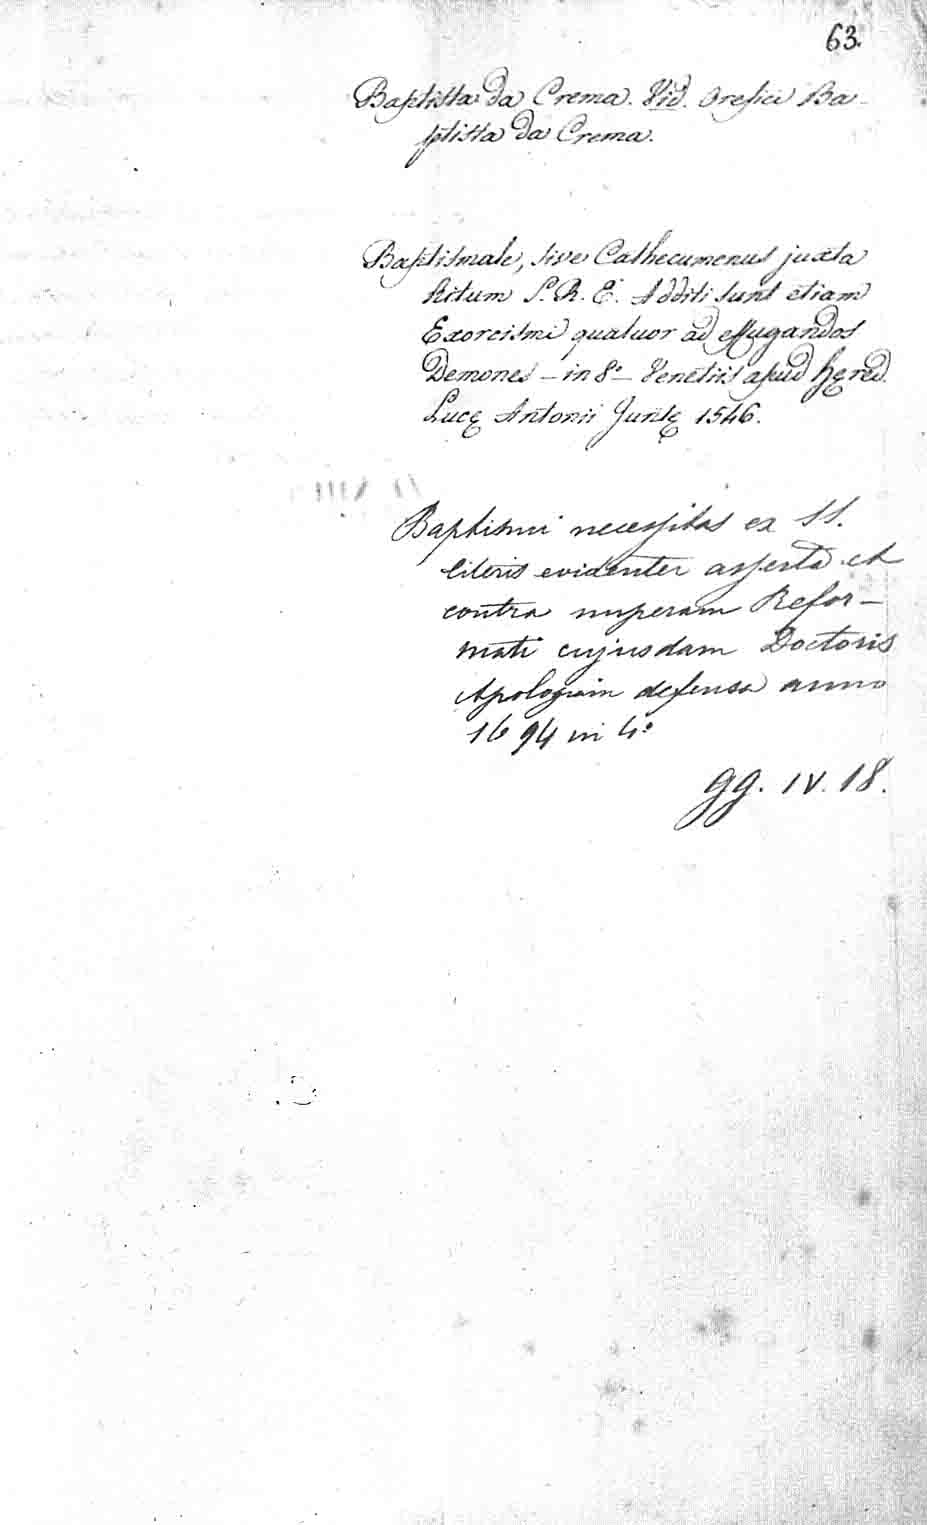 63.
Baptista da Crema. Vid. Orefici Ba-
ptista da Crema.
Baptismale, sive Cathecumenus juxta
Ritum S. R. E. Additi sunt etiam
Exorcismi quatuor ad effugandos
Demones - in 8.° - Venetiis apud hęred.
Lucę Antonii Juntę 1546.
Baptismi necessitas ex SS.
literis evidenter asserta et
contra nuperam Refor-
mati cujusdam Doctoris
Apologiam defensa anno
1694 in 4.°
gg. IV. 18.